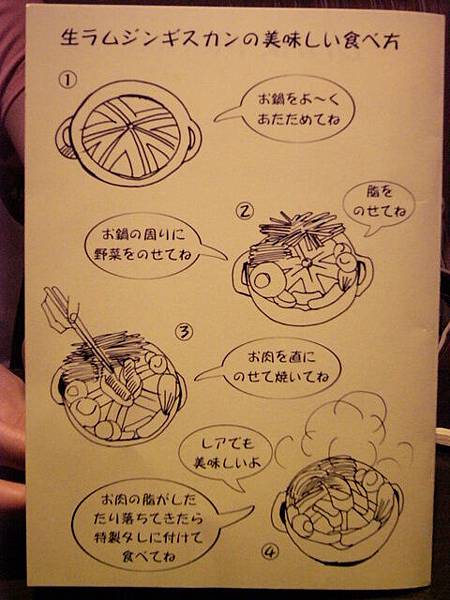 生ラムジンギスカンの美味しい食べ方
①
お鍋をよ～く
あたためてね
②
脂を
のせてね
お鍋の周りに
野菜をのせてね
③
お肉を直に
のせて焼いてね
レアでも
美味しいよ
お肉の脂がした
たり落ちてきたら
特製タレに付けて
食べてね
④